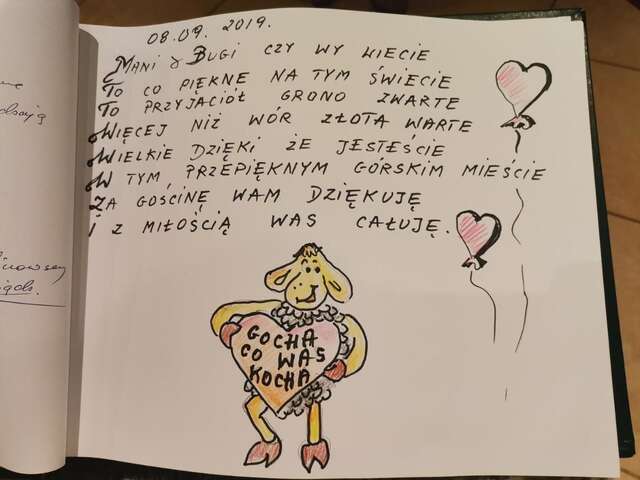 08.09.2019.
MANI & BUGI CZY WY WIECIE
TO CO PIĘKNE NA TYM ŚWIECIE
TO PRZYJACIÓŁ GRONO ZWARTE
WIĘCEJ NIŻ WÓR ZŁOTA WARTE
WIELKIE DZIĘKI ŻE JESTEŚCIE
W TYM PRZEPIĘKNYM GÓRSKIM MIEŚCIE
ZA GOŚCINĘ WAM DZIĘKUJĘ
I Z MIŁOŚCIĄ WAS CAŁUJĘ.
GOCHA
CO WAS
KOCHA